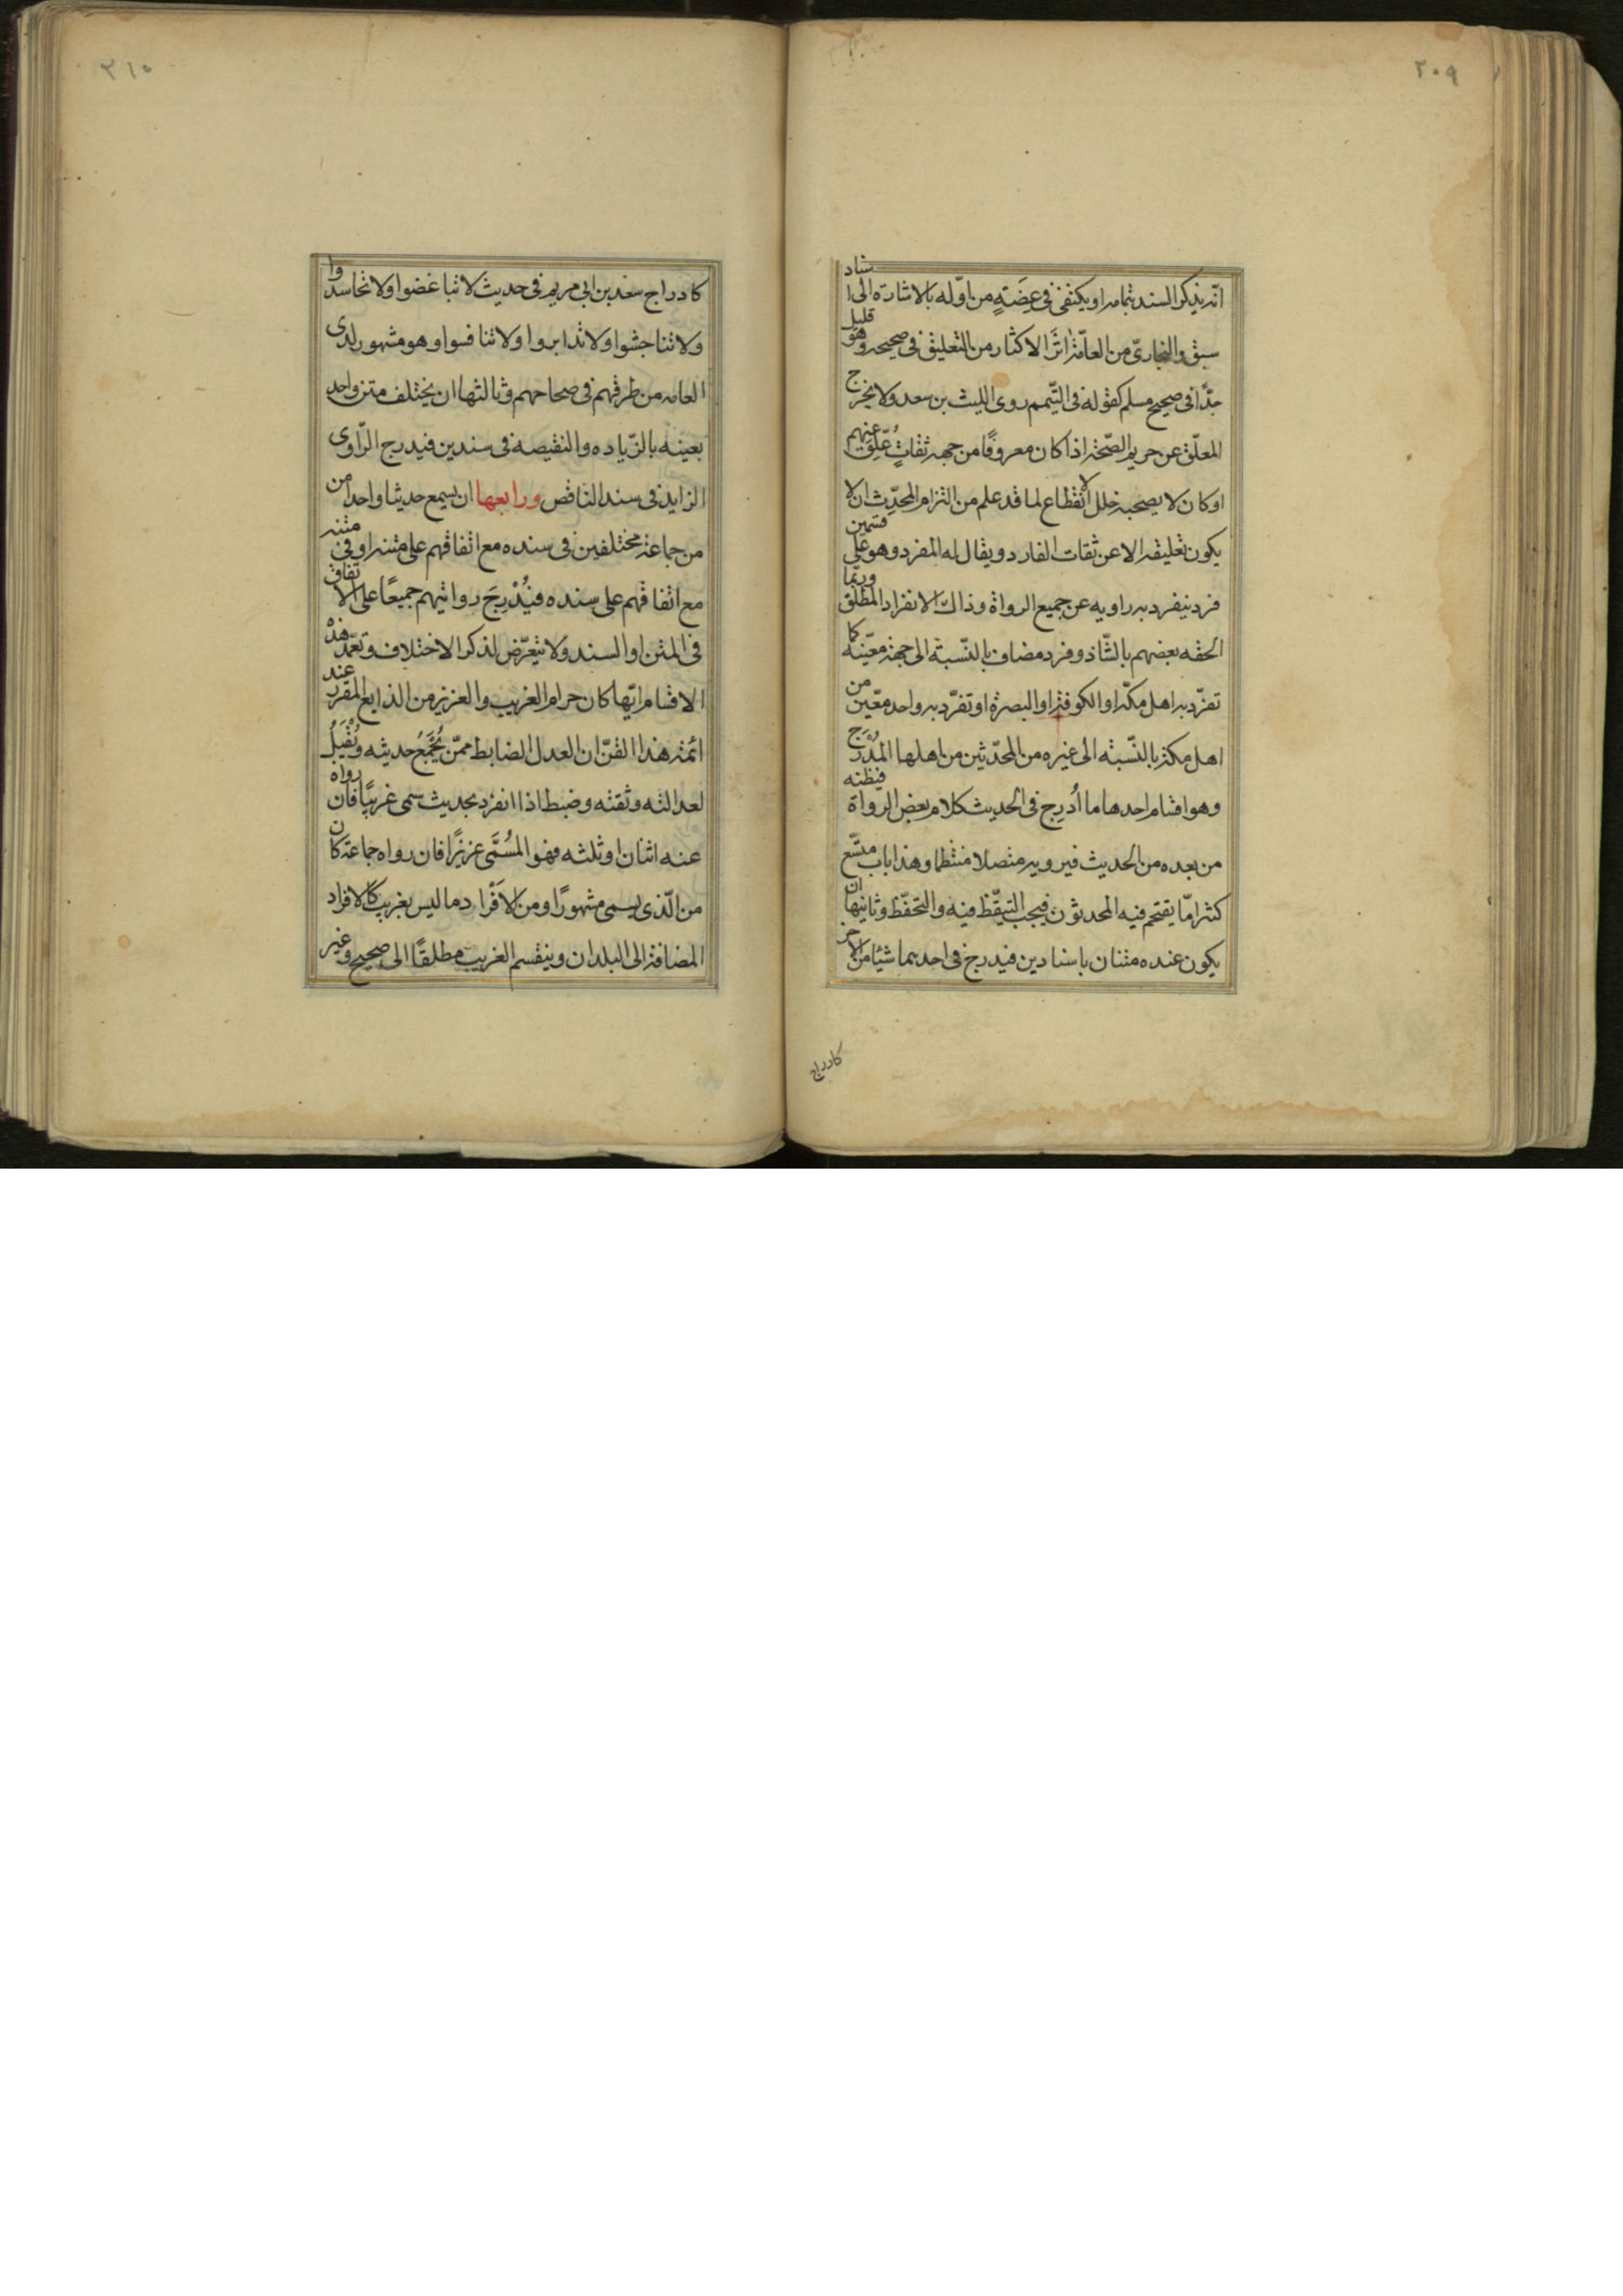 ٢٠٩
انّه يذكر السند بتمامه او يكتفى فى عِضَةٍ من اوّله بالاشارة الى اسناد
سبق والبخارىّ من العامّة اثَرَ الاكثار من التعليق فى صحيحه وهو قليل
جدّا فى صحيح مسلم كقوله فى التيّمم روى الليث بن سعد ولا يخرج
المعلّق عن حريم الصّحّة اذا كان معروفًا من جهة ثقاتٍ عُلِّق عنهم
او كان لا يصحبه خلل الانقطاع لما قد علم من التزام المحدِّث ان لا
يكون تعليقه الا عن ثقات الفارد ويقال له المفرد وهو على قسمين
فرد ينفرد به راويه عن جميع الرواة وذاك الانفراد المطلق وربّما
الحقه بعضهم بالشّاذ وفرد مضاف بالنّسبة الى جهة معيّنة كما
تفرّد به اهل مكّة او الكوفة او البصرة او تفرّد به واحد معيّن من
اهل مكة بالنّسبته الى غيره من المحدّثين من اهلها المُدْرَج
وهو اقسام احدها ما اُدرِج فى الحديث كلام بعض الرواة فيظنه
من بعده من الحديث فيرويه متصلا منتظما وهذا باب متّسع
كثر امّا يقتحم فيه المحدثون فيجب التيقّظ فيه والتحفّظ وثانيها ان
يكون عنده متنان باسنادين فيدرج فى احدهما شيئا من الاخر
كادراج
٢١٠
كادراج سعد بن ابى مريم فى حديث لا تباغضوا ولا تحاسدوا
ولا تناجشوا ولا تدابروا ولا تنافسوا وهو مشهور لدى
العامه من طرقهم فى صحاحهم وثالثها ان يختلف متن واحد
بعينه بالزّياده والنقيصه فى سندين فيدرج الرّاوى
الزايد فى سند الناقص ورابعها ان يسمع حديثا واحدا من
من جماعة مختلفين فى سنده مع اتفاقهم على متنه او فى متنه
مع اتفاقهم على سنده فيُدْرِجَ روايتهم جميعًا على الاتفاق
فى المتن او السند ولا يتعرّض لذكر الاختلاف وتعمّد هذه
الاقسام ايّها كان حرام الغريب والعزيز من الذايع المقرر عند
ائمة هذا الفنّ ان العدل الضابط ممّن يُجْمَعُ حديثه ويُقْبَلُ
لعدالته وثقته وضبطه اذا انفرد بحديث سمى غريبًا فان رواه
عنه اثنان او ثلثه فهو المُسَمَّى عزيزًا فان رواه جماعة كان
من الّذى يسمى مشهورًا ومن الاَفْراد ما ليس بغريب كالافراد
المضافة الى البلدان وينقسم الغريب مطلقًا الى صحيح وغير